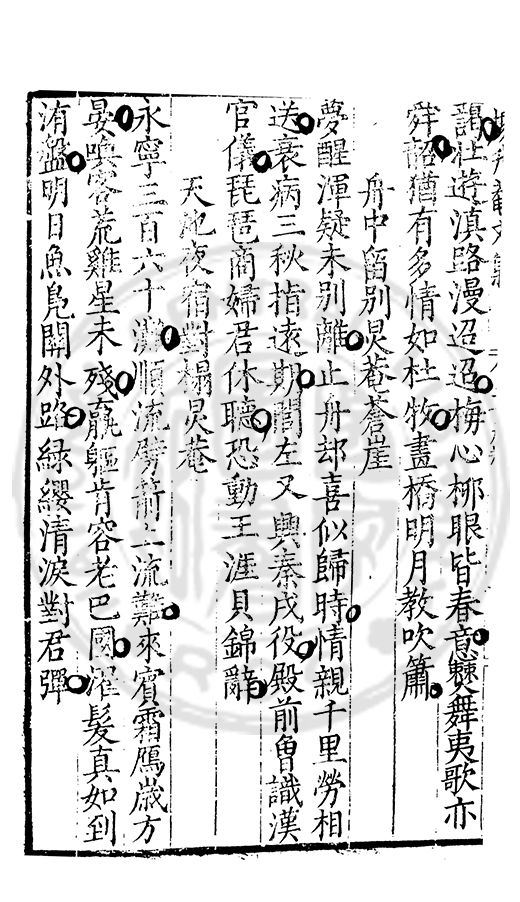 謁杜遊滇路漫迢迢梅心柳眼皆春意僰舞夷歌亦
舜韶猶有多情如杜牧畫橋明月教吹簫
舟中留別炅菴蒼崖
夢醒渾疑未別離止舟却喜似歸時情親千里勞相
送衰病三秋指遠期閭左又興秦戍役殿前曾識漢
官儀琵琶商婦君休聽恐動王涯貝錦辭
天池夜宿對榻炅菴
永寧三百六十灘順流劈箭上流難來賓霜鴈歲方
晏喚客荒雞星未殘羸軀肯容老巴國濯髮真如到
洧盤明日魚鳧關外路綠纓清淚對君彈